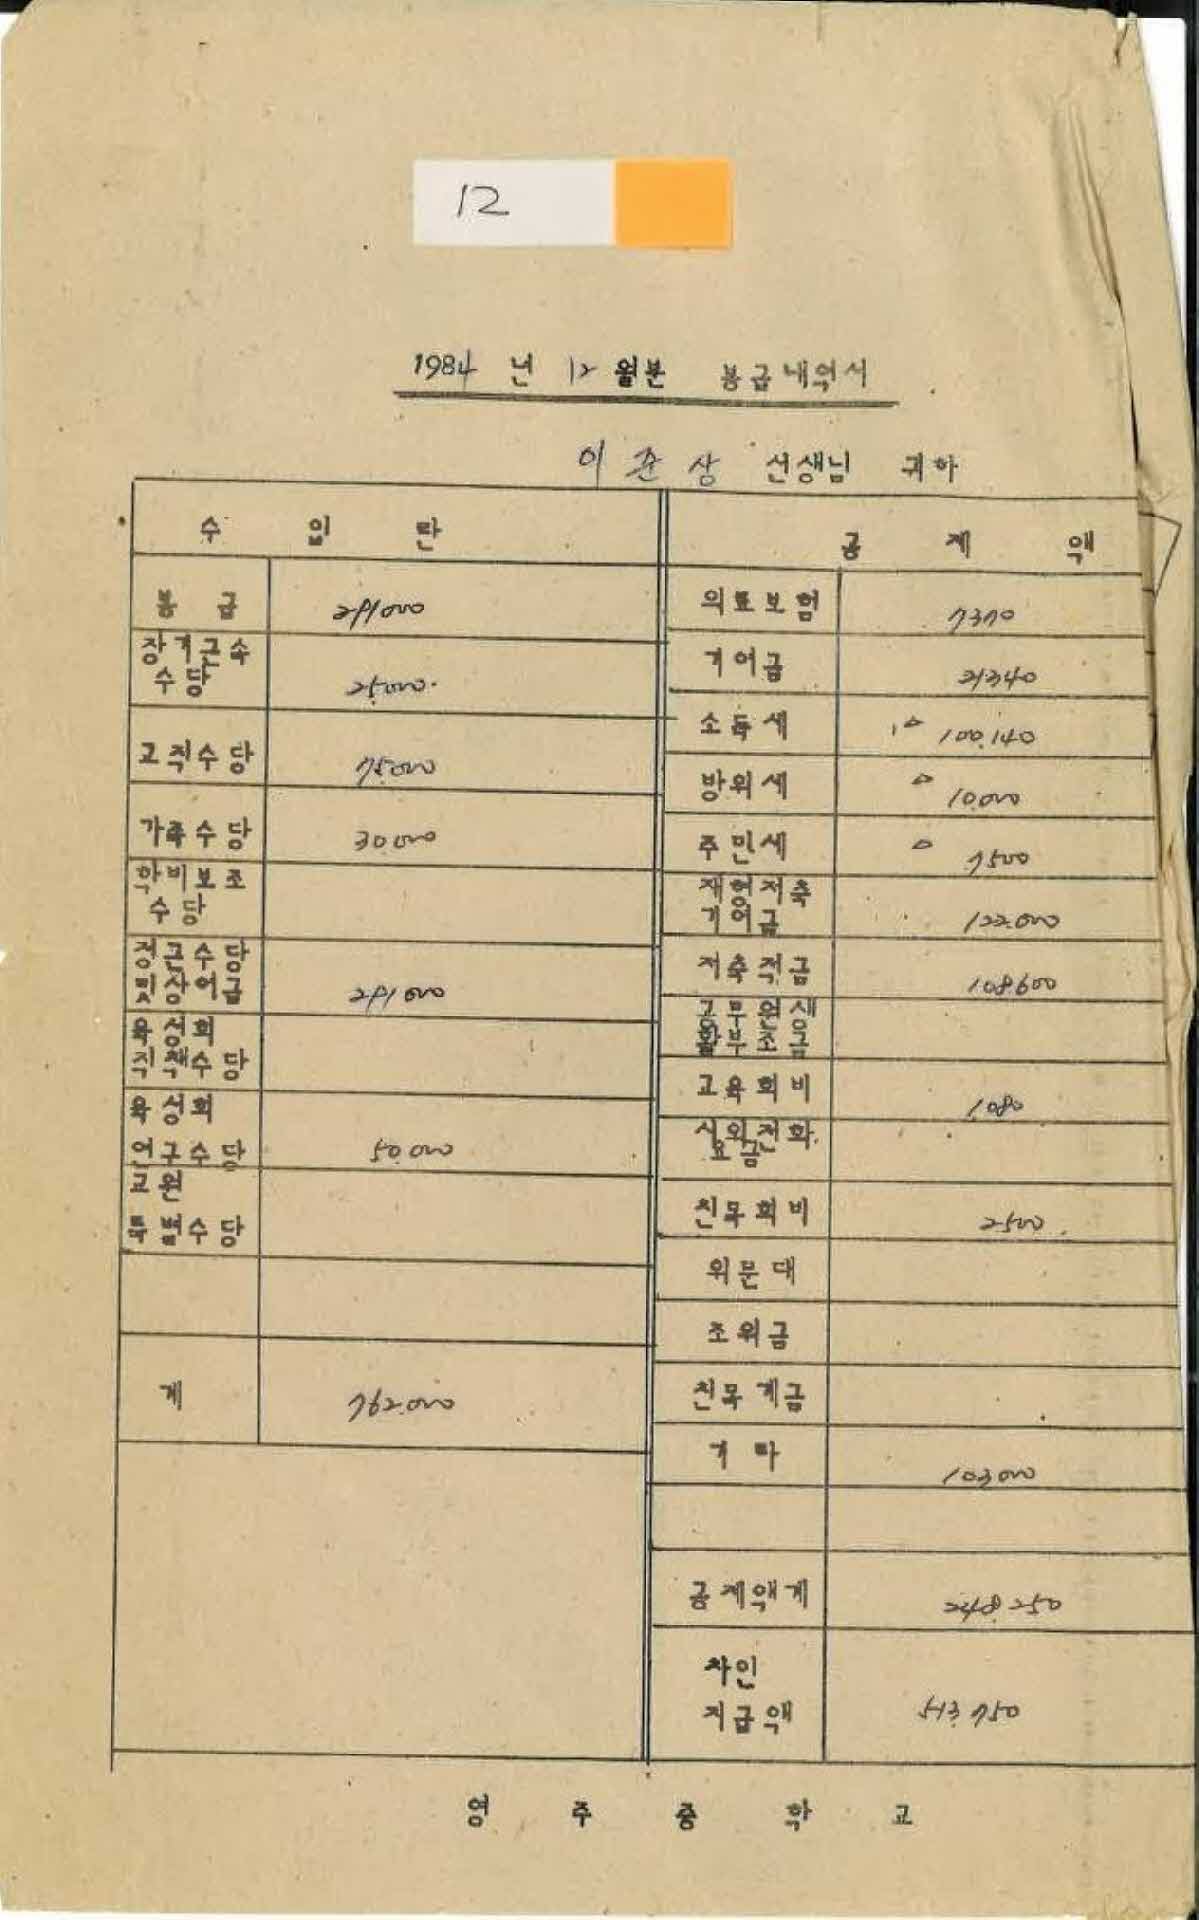 12
1984 년 12 월분 봉급내역서
이준상 선생님 귀하
수 입 란
봉 급 291000
장기근속
수당 25,000.
교직수당 75,000
가족수당 30,000
학비보조
수당
정근수당
및상여금 291000
육성회
직책수당
육성회
연구수당 50,000
교원
특별수당
계 762,000
공 제 액
의료보험 7370
기여금 21340
소득세 △ 100,140
방위세 △ 10,000
주민세 △ 7500
재형저축
기여금 122,000
저축적금 108600
공무원생
활부조금
교육회비 1,080
시외전화
요금
친목회비 2500.
위문대
조위금
친목계금
기 타 103000
공제액계 248,250
차인
지급액 513,750
영 주 중 학 교